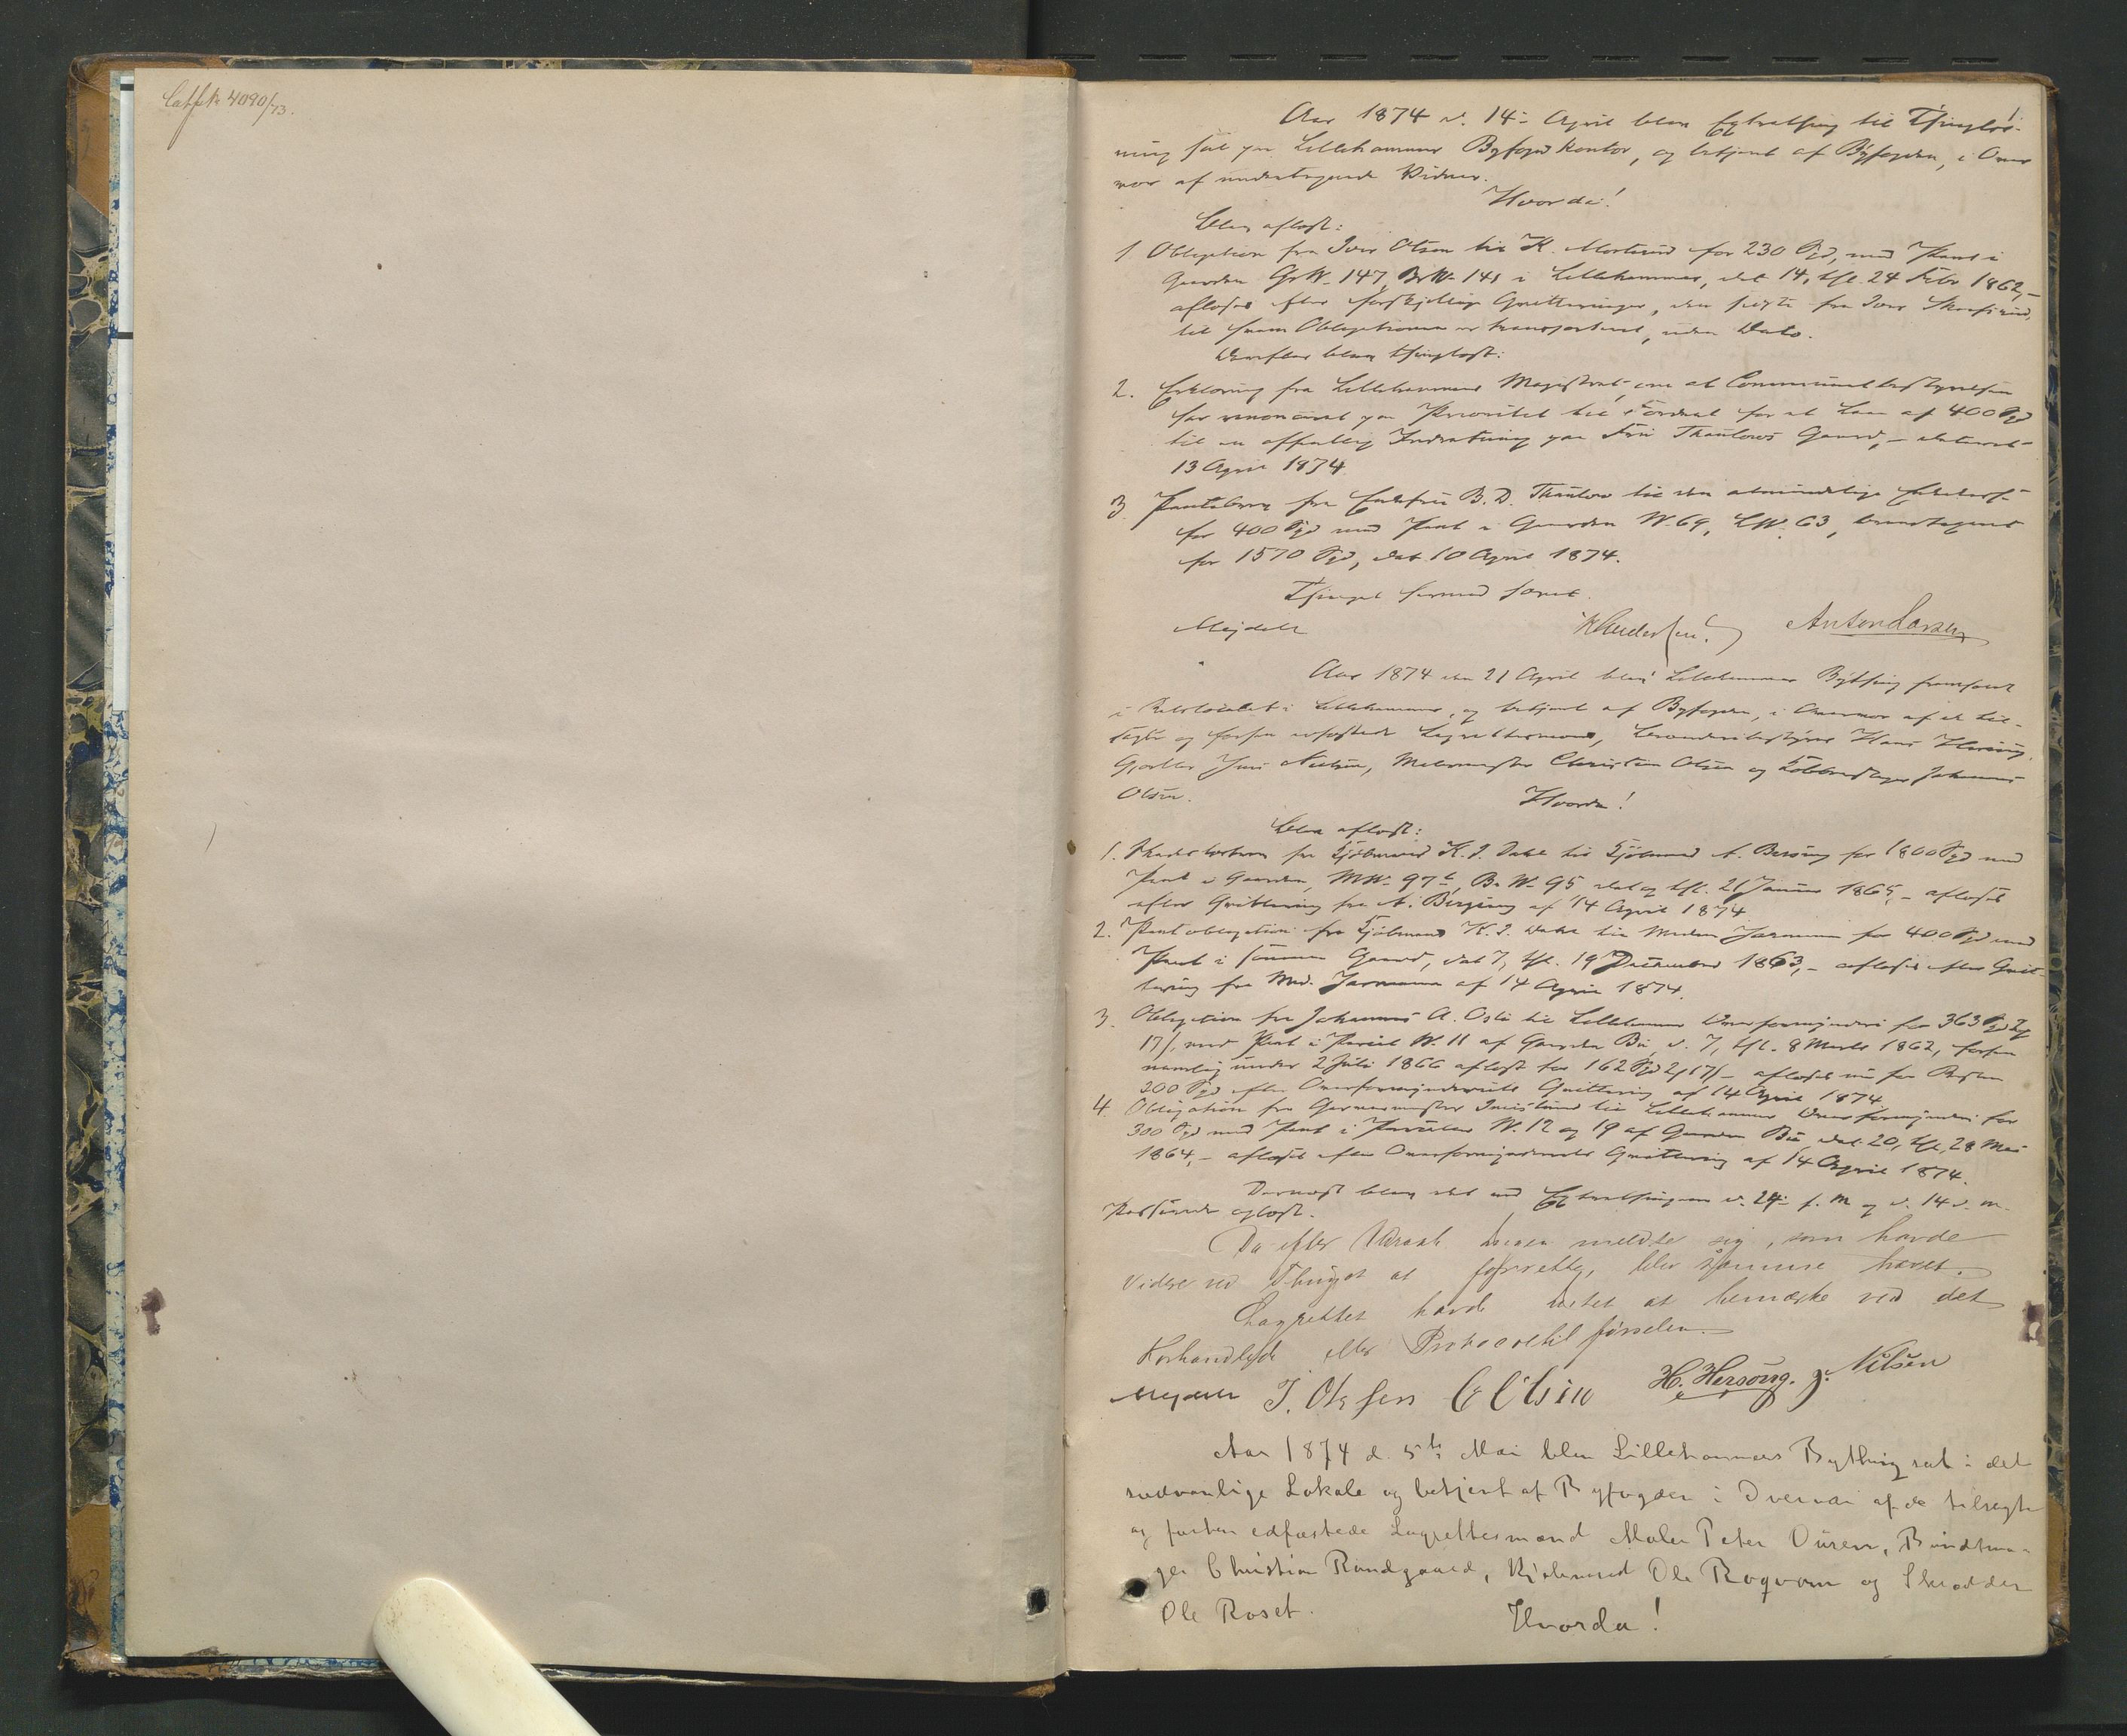 4090/73.
1
Aar 1874 d. 14de April blev Extrathing til Thinglæs-
ning sat paa Lillehammer Byfogdkontor, og betjent af Byfogden, i Over
vær af undertegnede Vidner.
Hvorda!
Blev aflæst:
1 Obligation fra Iver Olsen til K. Morterud for 230 Spd, med Pant i
Gaarden GrN. 147, BrN. 141 i Lillehammer, dat 14, thl. 24 Febr 1862,-
aflæses efter forskjellige Qvitteringer, den sidste fra Iver
til hvem Obligationen er transporteret, uden Dato.
Derefter blev thinglæst:
2. Erklæring fra Lillehammer Magistrat, om at Communebestyrelsen
har renonceret paa Prioritet til Fordeel for et Laan af 400 Spd
til en offentlig Indretning paa Fru Thaulows Gaard,- dateret
13 April 1874
3 Pantebrev fra Enkefru B. D. Thaulow til den almindelige Enkekasse
for 400 Spd med Pant i Gaarden N. 69, LN. 63, brandtaxeret
for 1570 Spd, dat 10 April 1874.
Thinget hermed hævet.
Mejdell Andersen. Anton Larsen
Aar 1874 den 21 April blev Lillehammer Bything fremsat
i Retslokalet i Lillehammer, og betjent af Byfogden, i Overvær af de til-
sagte og forhen edfæstede Lagrettesmænd, Hans Hersoug,
Gjørtler Jens Nielsen, Malermester Christian Olsen og Johannes
Olsen. Hvorda!
Blev aflæst:
1. fra Kjøbmand K. I. Dahl til Kjøbmand A. Berseng for 1800 Spd med
Pant i Gaarden, MN. 97b, Br N. 95 dat og thl. 21 Januar 1865,- aflæses
efter Qvittering fra A. Berseng af 14 April 1874
2. Pantobligation fra Kjøbmand K. I. Dahl til Madam Jarmann for 400 Spd med
Pant i samme Gaard, dat 7, thl. 19 December 1863,- aflæses efter Qvit-
tering fra Mad. Jarmann af 14 April 1874.
3. Obligation fra Johannes A. Oslo til Lillehammer Overformynderi for 363 Spd 2
17 s, med Pant i Parcel N. 11 af Gaarden Bø, d. 7, thl. 8 Marts 1862, forhen
nemlig under 2 Juli 1866 aflæst for 162 Spd 2 17 s,- aflæses nu for Resten
200 Spd efter Overformynderiets Qvittering af 14 April 1874
4. Obligation fra Garvermester til Lillehammer Overformynderi for
300 Spd med Pant i Parceller N. 12 og 19 af Gaarden Bø, dat. 20, thl. 28 Mai
1864,- aflæses efter Overformynderiets Qvittering af 14 April 1874.
Dernæst blev det ved Extrathingene d. 24de f. M og d. 14 d. M.
Passerede oplæst.
Da efter Udraab Ingen meldte sig, som havde
Videre ved Thinget at forrette, blev samme hævet.
Lagrettet havde Intet at bemærke ved det
Forhandlede eller Protocoltilførselen.
Mejdell J. Olsen C Olsen H. Hersoug. J. Nilsen
Aar 1874 d. 5te Mai blev Lillehammers Bything sat i det
sædvanlige Lokale og betjent af Byfogden i Overvær af de tilsagte
og forhen edfæstede Lagrettesmænd Maler Peter Ouren, Bundtma-
ger Christian Rundgaard, Kjøbmand Ole Roqvam og Skrædder
Ole Roset. Hvorda!